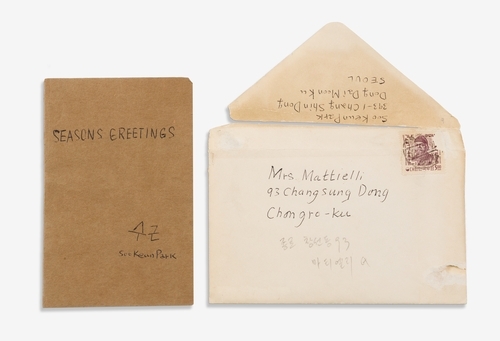 SEASONS GREETINGS
Soo Keun Park
Soo Keun Park
393-1 Chang Shin Dong
Dong Dai Moon Ku
SEOUL
Mrs Mattielli
93 Changsung Dong
Chongro-ku
종로 창성동 93